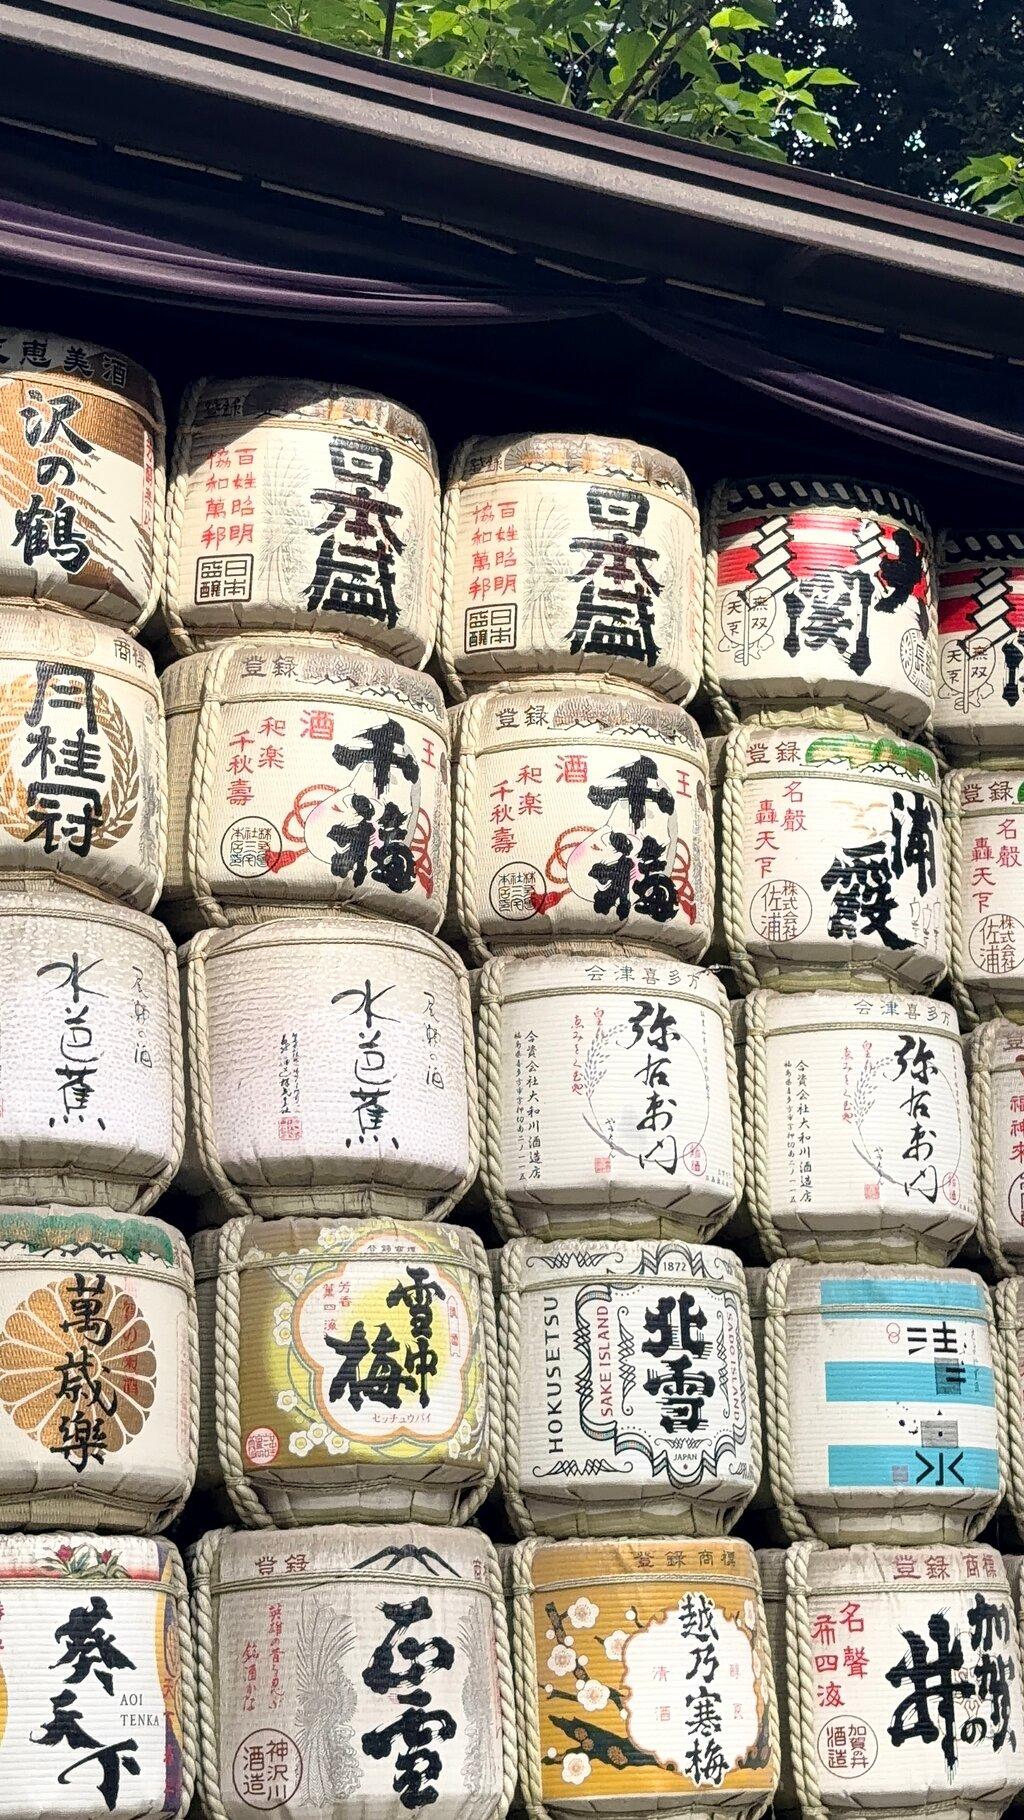 恵美酒
沢の鶴
登録
百姓昭明
協和萬邦
日本盛
日本
盛醸
登録
百姓昭明
協和萬邦
日本盛
日本
盛醸
大関
天下
無双
天下
無双
商標
月桂冠
登録
酒
王
和楽
千秋壽
千福
登録
酒
王
和楽
千秋壽
千福
登録
名聲
轟天下
浦霞
株式会社
佐浦
登録
名聲
轟天下
株式会社
佐浦
尾瀬の酒
水芭蕉
尾瀬の酒
水芭蕉
会津喜多方
弥右衛門
合資会社大和川酒造店
会津喜多方
弥右衛門
合資会社大和川酒造店
萬歳樂
登録商標
芳香
薫四海
雪中梅
セッチュウバイ
1872
HOKUSETSU
SAKE ISLAND
北雪
SADO ISLAND
JAPAN
葵天下
AOI
TENKA
登録
商
正雪
神沢川
酒造
登録商標
越乃寒梅
清酒
登録商標
名聲
布四海
加賀の井
加賀の井
酒造